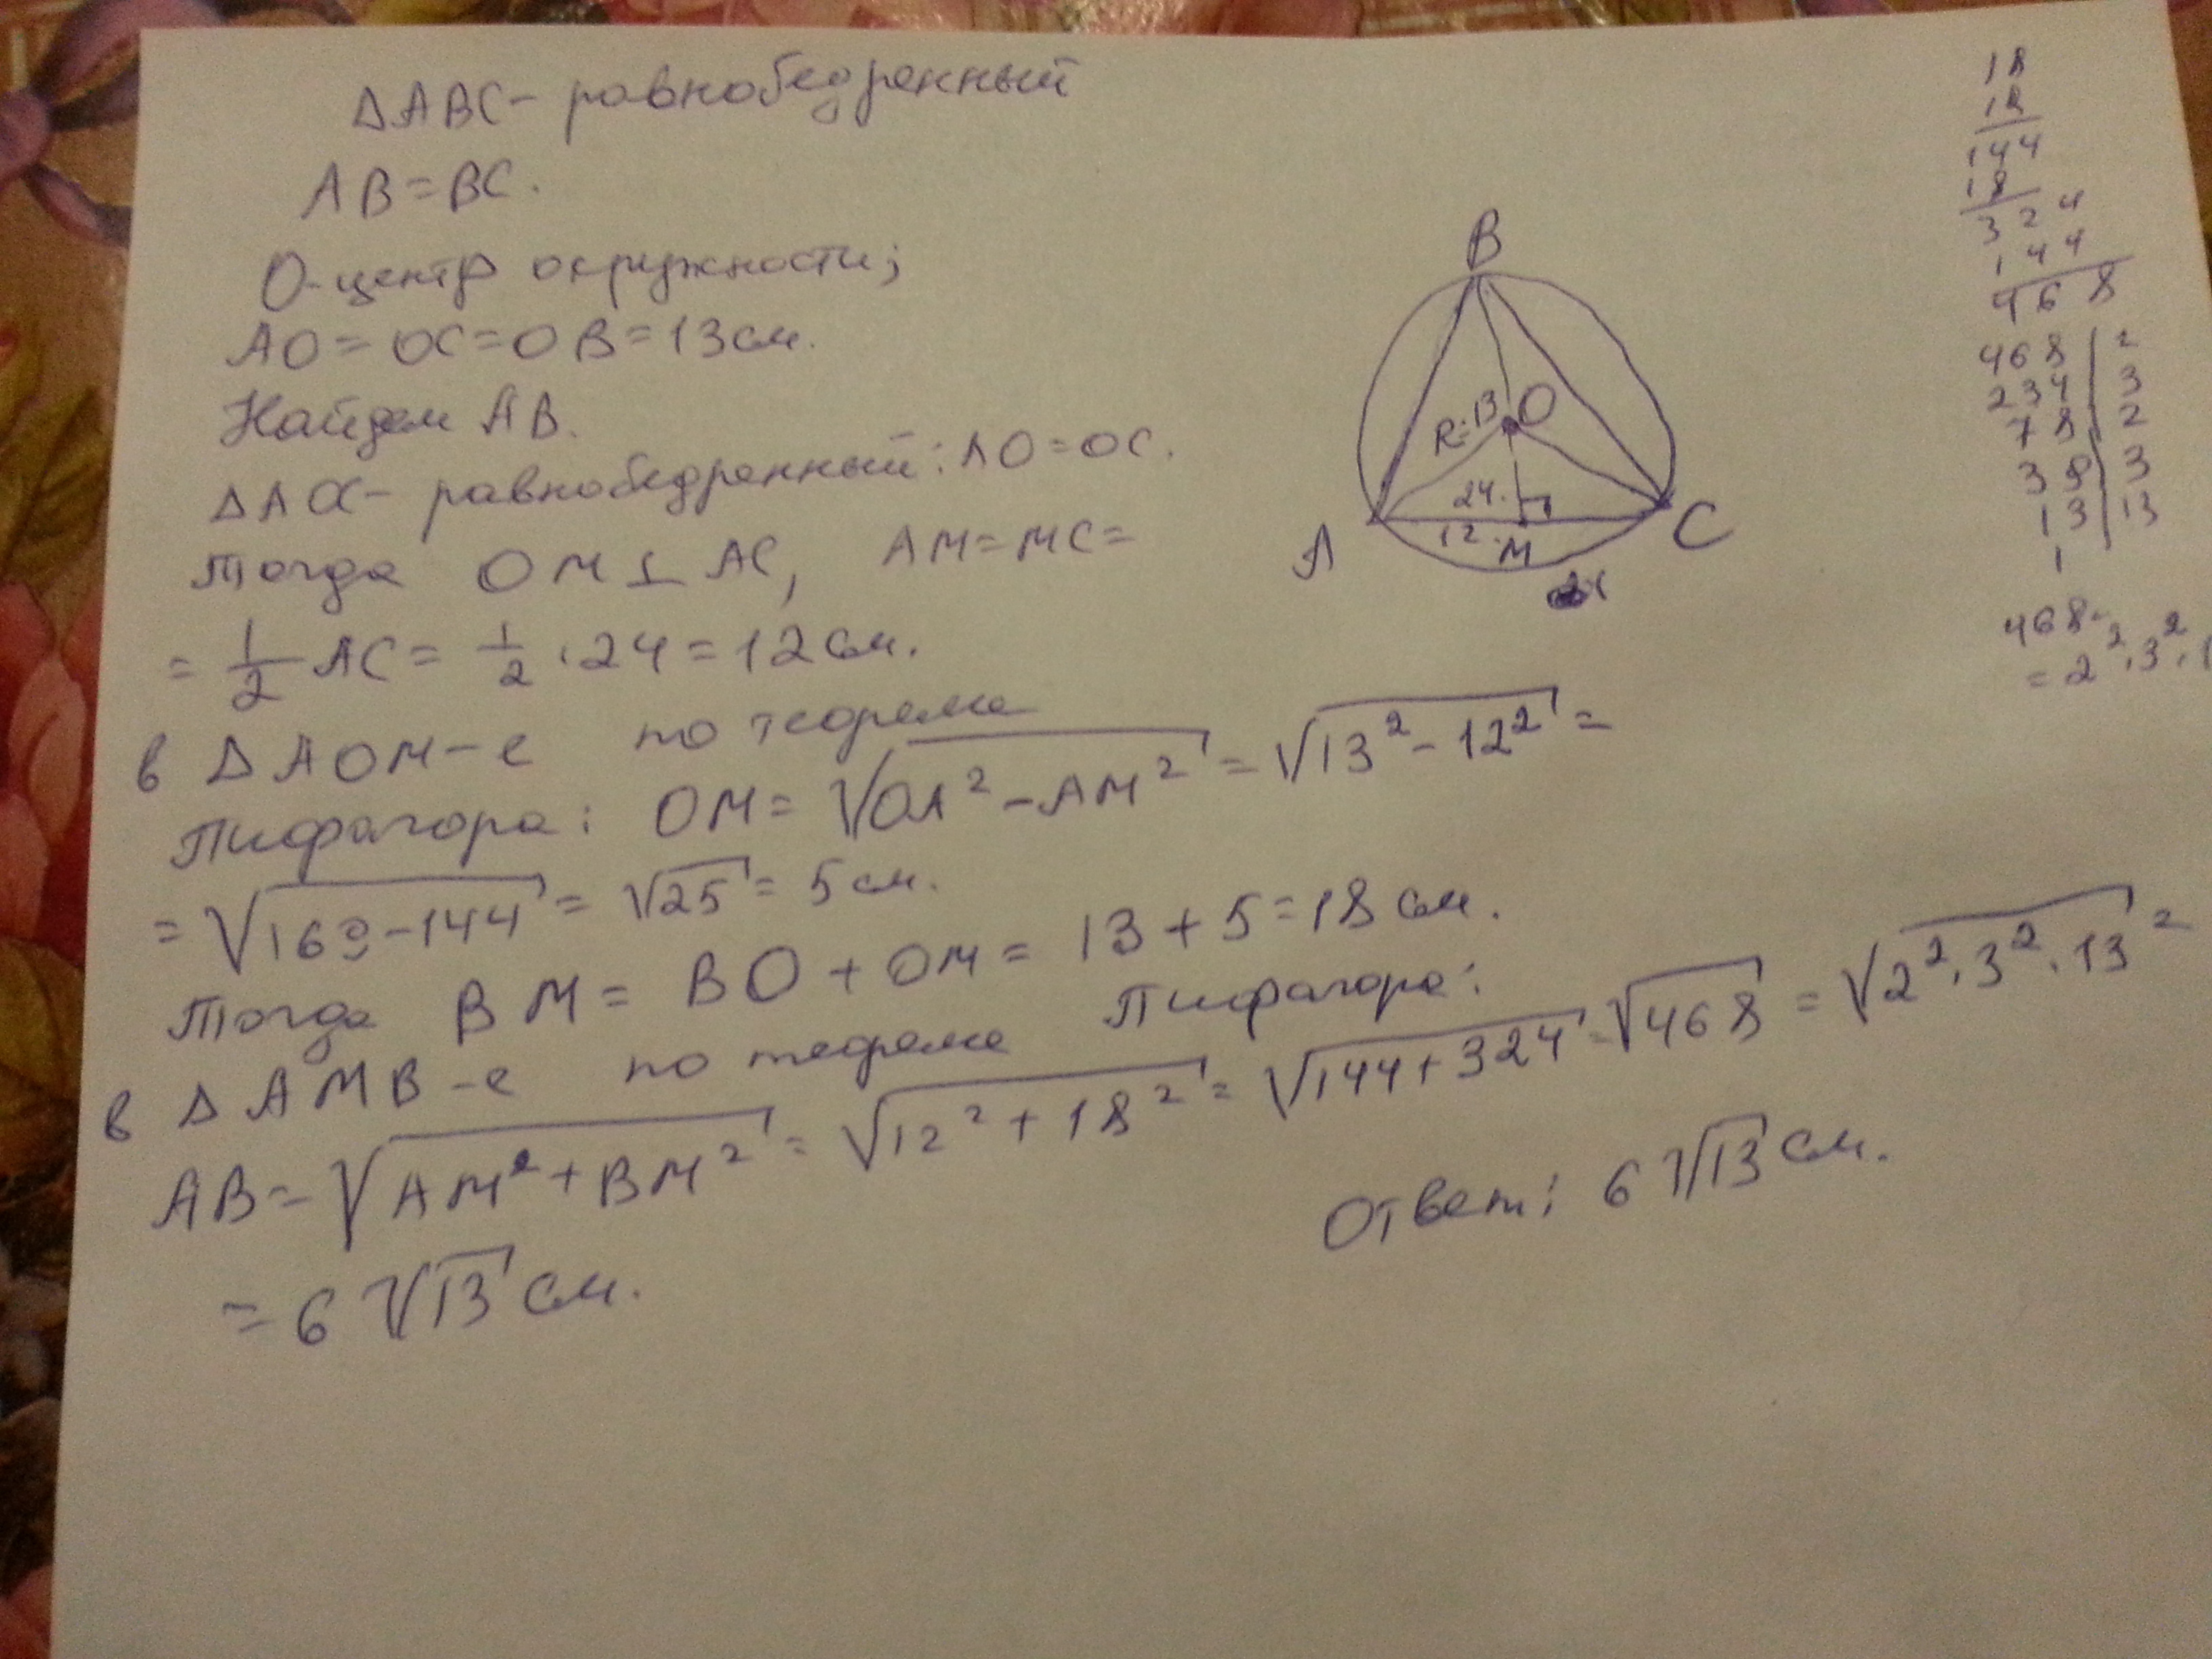 ΔABC - равнобедренный
AB = BC.
O - центр окружности;
AO = OC = OB = 13 см.
Найдем AB.
ΔAOC - равнобедренный: AO = OC.
Тогда OM ⊥ AC, AM = MC =
= 1/2 AC = 1/2 · 24 = 12 см.
в ΔAOM-е по теореме
Пифагора: OM = √(OA² - AM²) = √(13² - 12²) =
= √(169 - 144) = √25 = 5 см.
Тогда BM = BO + OM = 13 + 5 = 18 см.
в ΔAMB-е по теореме Пифагора:
AB = √(AM² + BM²) = √(12² + 18²) = √(144 + 324) = √468 = √(2² · 3² · 13) =
= 6√13 см.
Ответ: 6√13 см.
B
R=13 O
24.
A 12. M C
18
18
144
18
324
144
468
468 | 2
234 | 3
78 | 2
38 | 3
13 | 13
1
468 =
= 2² · 3² ·